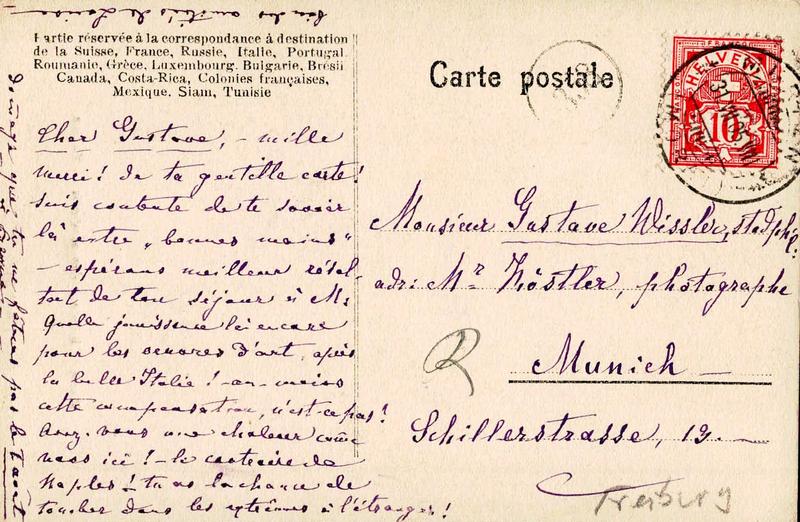 Partie réservée à la correspondance à destination
de la Suisse, France, Russie, Italie, Portugal
Roumanie, Grèce, Luxembourg, Bulgarie, Brésil
Canada, Costa-Rica, Colonies françaises,
Mexique, Siam, Tunisie
Cher Gustave, - mille
merci! de ta gentille carte!
suis contente de te savoir
là entre „bonnes mains"
- espérons meilleur résul-
tat de ton séjour à M.
Quelle jouissance là encore
pour les oeuvres d'art, après
la belle Italie! - au moins
cette compensation, n'est-ce pas!
Avez-vous une chaleur comme
nous ici! - le contraire de
Naples! tu as la chance de
tomber dans les extrêmes à l'étranger!
dommage que tu ne fêteras pas le 1 août
Carte postale
HELVETIA
10
Monsieur Gustave Wissler, stud. phil.
adr: Mr Köstler, photographe
Munich -
Schillerstrasse, 19.
R
Freiburg